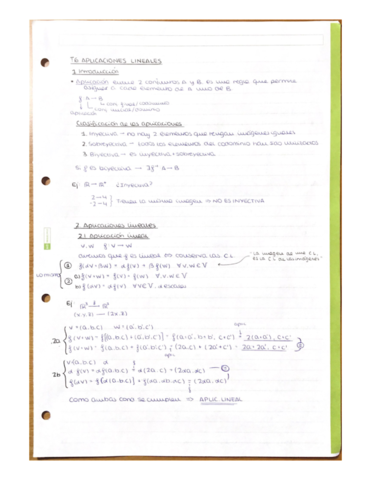 T6 APLICACIONES LINEALES
1. Introducción
• Aplicación entre 2 conjuntos A y B es una regla que permite
asignar a cada elemento de A uno de B
f: A → B
Aplicación
Clasificación de las aplicaciones
1. Inyectiva → no hay 2 elementos que tengan imágenes iguales
2. Sobreyectiva → todos los elementos del codominio han sido
3. Biyectiva → es inyectiva + sobreyectiva
Si f es biyectiva → ∃f⁻¹ A → B
Ej: ¿Inyectiva?
2→4
-2→4
Tienen la misma imagen → NO ES INYECTIVA
2. Aplicaciones lineales
2.1 Aplicación lineal
v, w f: V → W
diremos que f es lineal conserva las C.L.
la imagen de una C.L.
es la C.L. de las imágenes
① f(αv + βw) = αf(v) + βf(w) ∀v, w ∈ V
Lo mismo
② a) f(v+w) = f(v) + f(w) ∀v, w ∈ V
b) f(αv) = αf(v) ∀v ∈ V
Ej:
2a
v = (a, b, c) w = (a', b', c')
f(v+w) = f[(a,b,c) + (a',b',c')] = f(a+a', b+b', c+c') = 2(a+a'), c+c'
f(v)+f(w) = f(a,b,c) + f(a',b',c') = (2a,c) + (2a'+c') = 2a+2a', c+c'
2b
v(a,b,c) α
αf(v) = αf(a,b,c) = α(2a,c) = (2αa, αc)
f(αv) = f[α(a,b,c)] = f(αa, αb, αc) = (2αa, αc)
como ambas cond se cumplen → APLIC. LINEAL